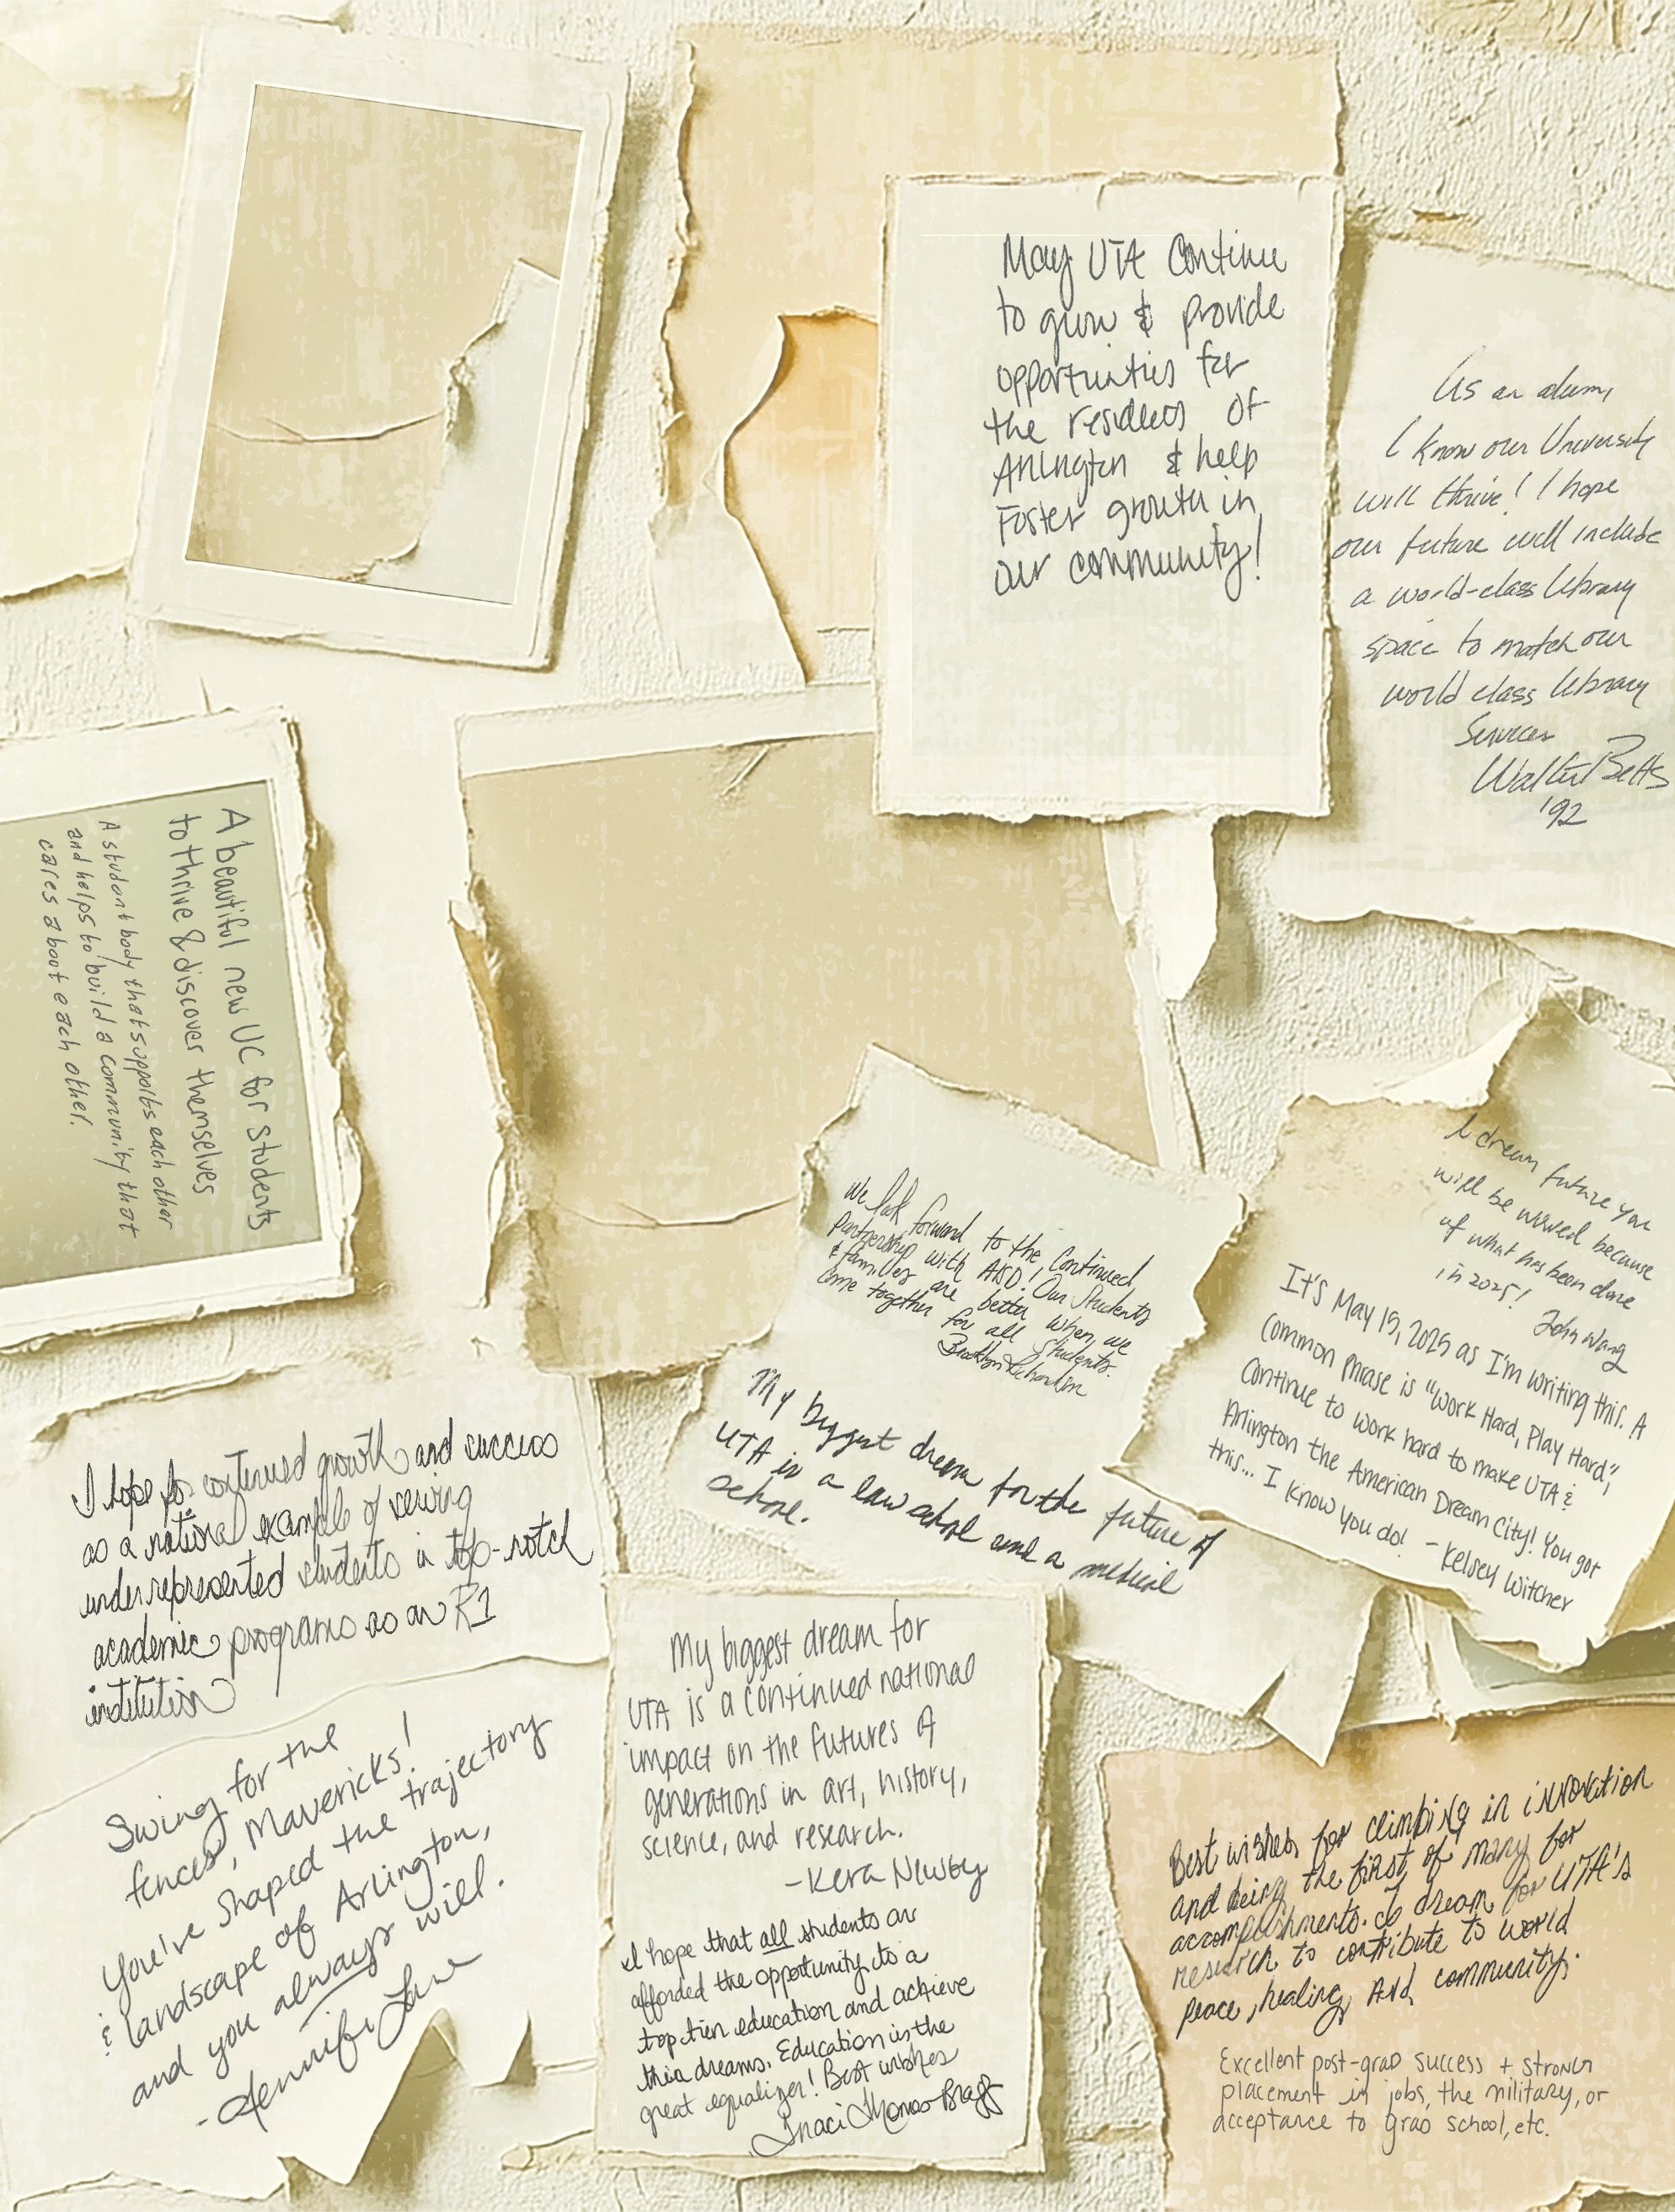 May UTA Continue
to grow & provide
opportunities for
the residents of
Arlington & help
Foster growth in
our community!
As an alum,
I know our University
will thrive! I hope
our future will include
a world-class library
space to match our
world class library
Services
Walter Betts
'92
A beautiful new UC for students
to thrive & discover themselves
A student body that supports each other
and helps to build a community that
cares about each other.
We look forward to the Continued
partnership with AISD! Our Students
& families are better when we
come together for all students.
I dream future you
will be wowed because
of what has been done
in 2025!
John Wang
My biggest dream for the future of
UTA is a law school and a medical
school.
It's May 15, 2025 as I'm writing this. A
common phrase is "Work Hard, Play Hard",
Continue to work hard to make UTA &
Arlington the American Dream City! You got
this... I know you do! - Kelsey Witcher
I hope for continued growth and success
as a national example of serving
underrepresented students in top-notch
academic programs as an R1
institution
Swing for the
fences, Mavericks!
You've shaped the trajectory
& landscape of Arlington,
and you always will.
- Jennifer Lane
My biggest dream for
UTA is a continued national
impact on the futures of
generations in art, history,
science, and research.
- Kera Newby
I hope that all students are
afforded the opportunity to a
top tier education and achieve
their dreams. Education is the
great equalizer! Best wishes
Traci Thomas-Bragg
Best wishes for climbing in innovation
and being the first of many for
accomplishments. I dream for UTA's
research to contribute to world
peace, healing, and community.
Excellent post-grad success + strong
placement in jobs, the military, or
acceptance to grad school, etc.